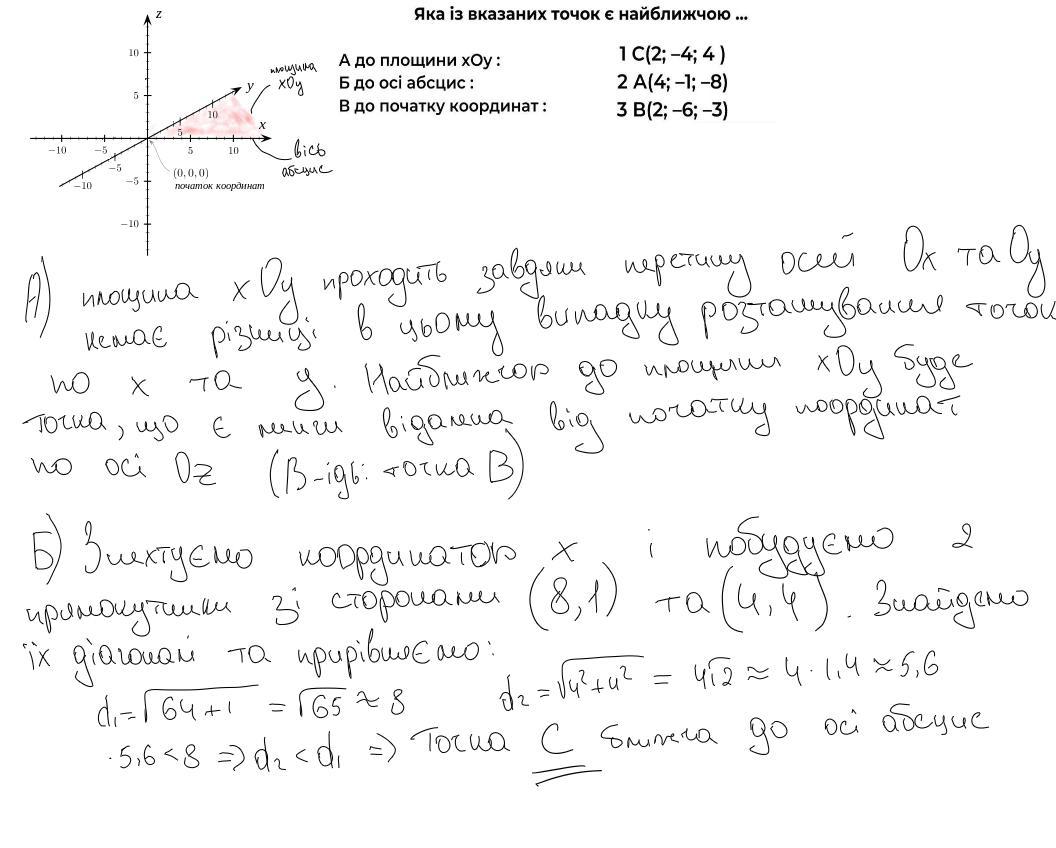 Яка із вказаних точок є найближчою ...
А до площини xOy :
Б до осі абсцис :
В до початку координат :
1 C(2; –4; 4 )
2 A(4; –1; –8)
3 B(2; –6; –3)
z
10
5
−5
−10
y
10
5
−5
−10
x
−10
−5
5
10
(0, 0, 0)
початок координат
площина
xOy
вісь
абсцис
А) площина xOy проходить завдяки перетину осей Ox та Oy
немає різниці в цьому випадку розташування точок
по x та y. Найближчою до площини xOy буде
точка, що є менш віддалена від початку координат
по осі Oz (В-ідь: точка B)
Б) Знехтуємо координатою x і побудуємо 2
прямокутники зі сторонами (8,1) та (4,4). Знайдемо
їх діагоналі та прирівняємо:
d₁=√64+1 = √65 ≈ 8 d₂=√4²+4² = 4√2 ≈ 4·1,4 ≈ 5,6
·5,6<8 => d₂<d₁ => Точка C ближча до осі абсцис